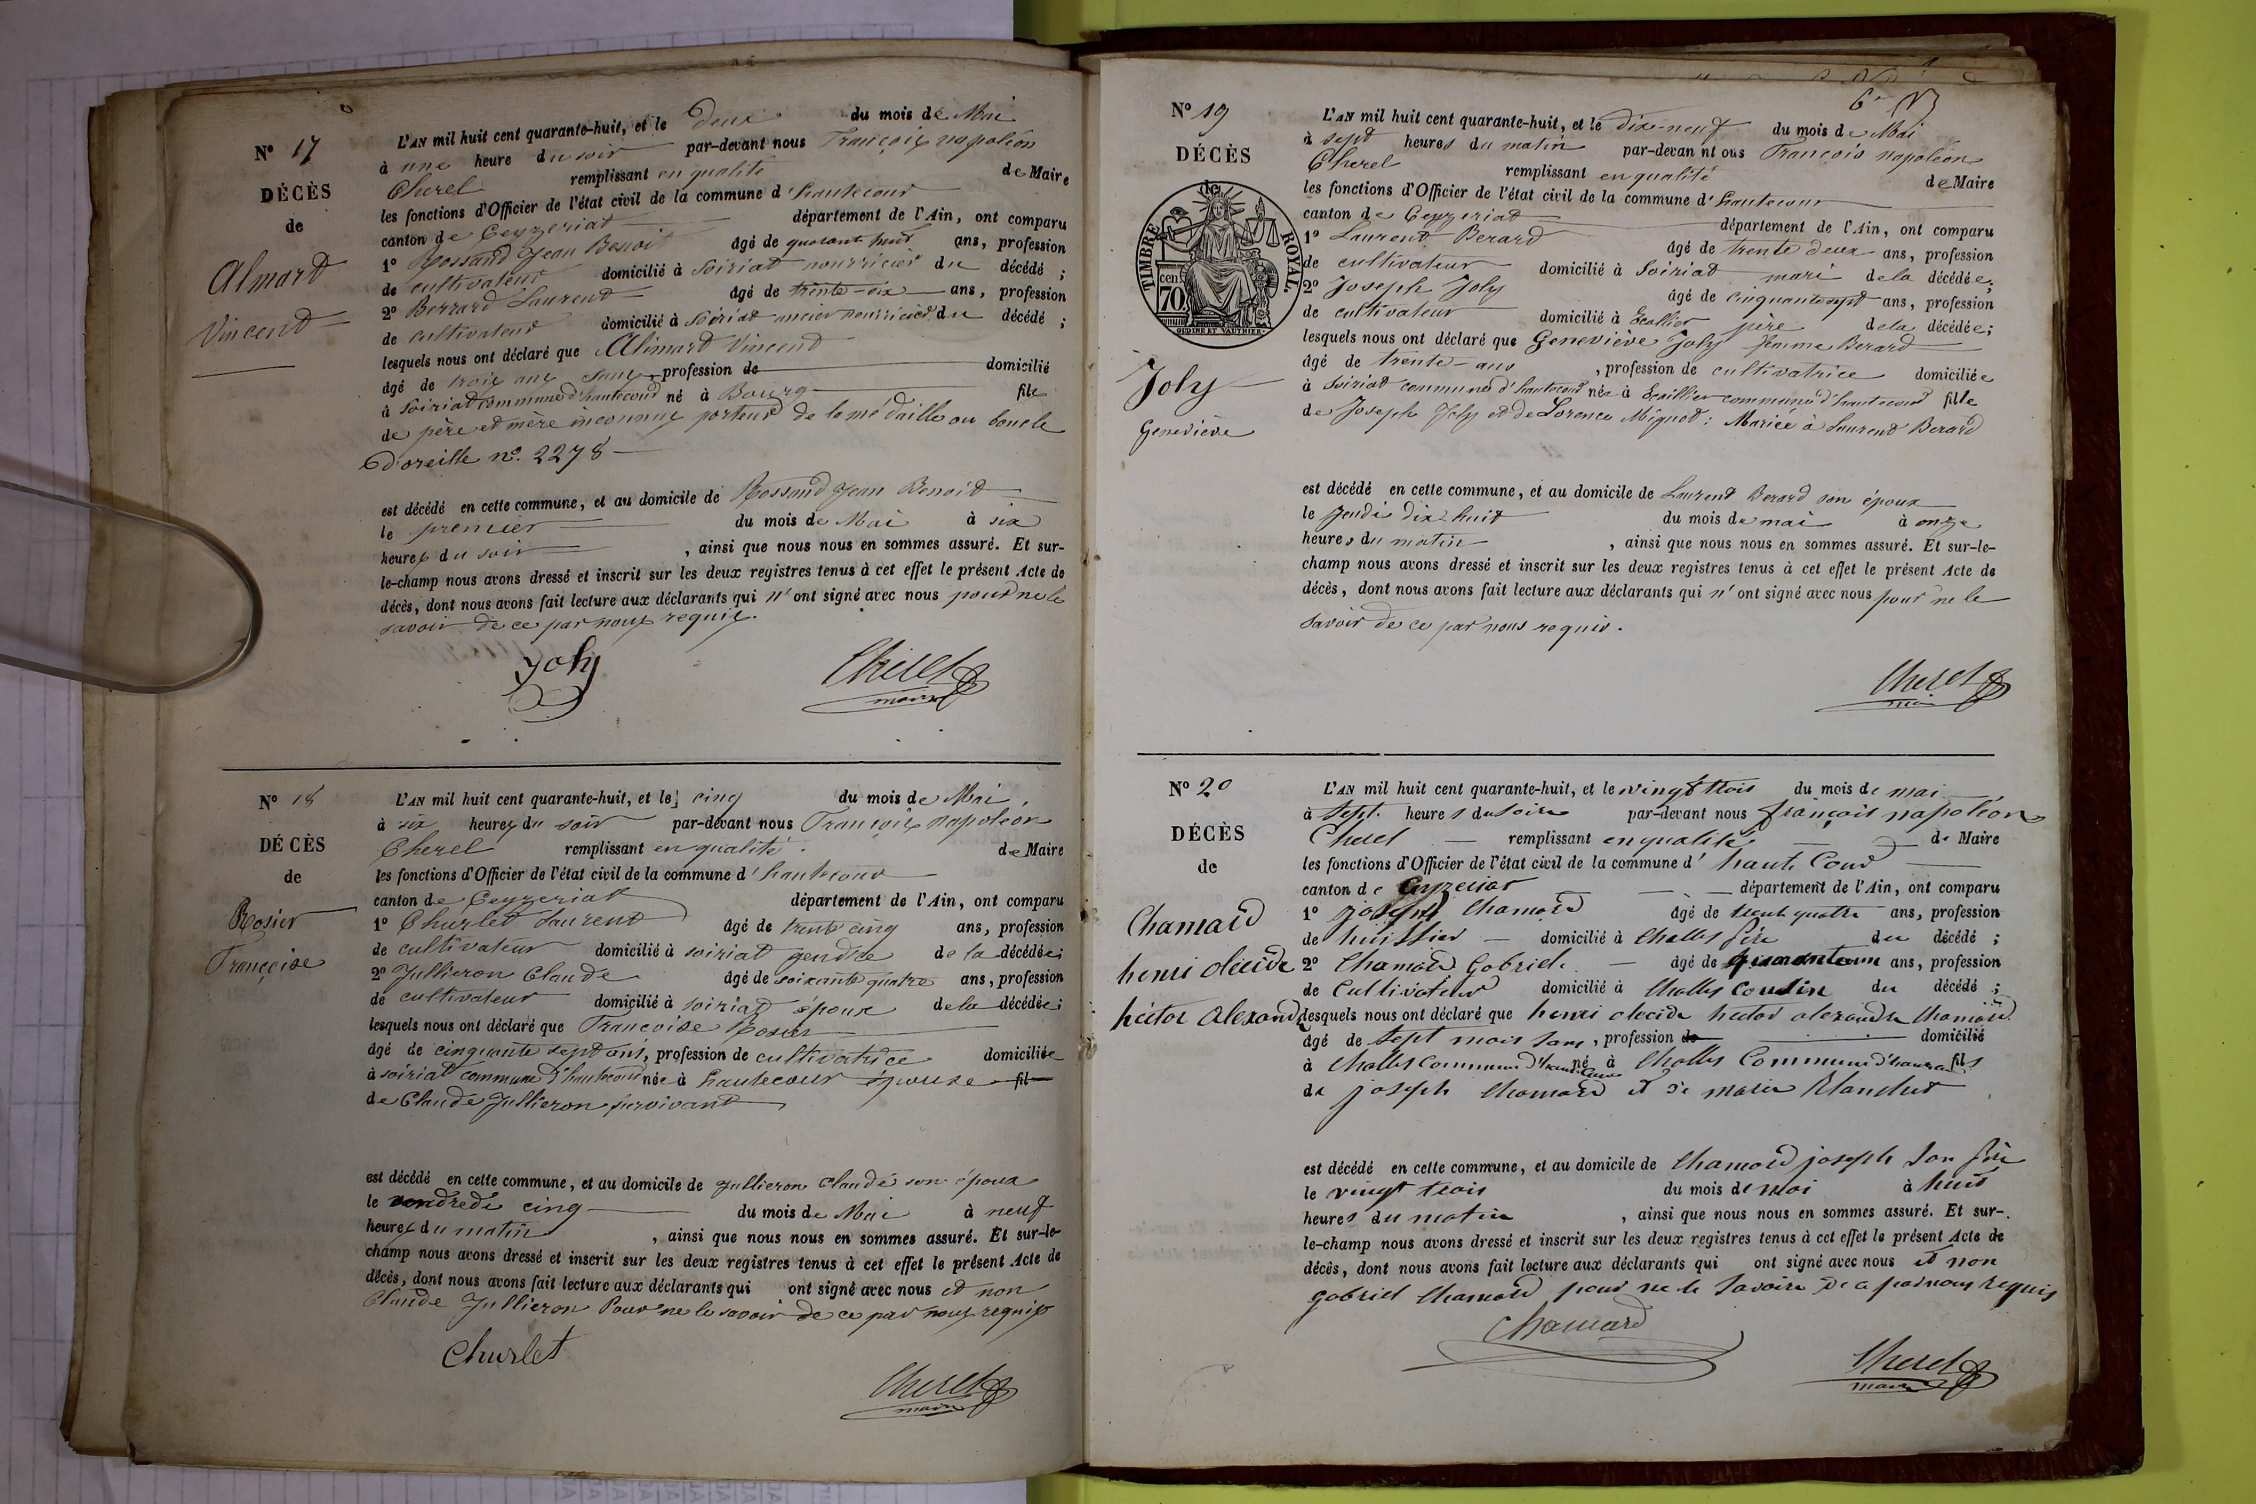 N° 17
DÉCÈS
de
Almard
Vincent
L'AN mil huit cent quarante-huit, et le deux du mois de Mai
à une heure du soir par-devant nous François napoléon
Cherel remplissant en qualité de Maire
les fonctions d'Officier de l'état civil de la commune d'hautecour
canton de Ceyzeriat département de l'Ain, ont comparu
1° Rossand Jean Benoit âgé de quarant huit ans, profession
de cultivateur domicilié à Soiriat nourricier du décédé ;
2° Berrard Laurent âgé de trente-six ans, profession
de cultivateur domicilié à Soiriat ancien nourricier du décédé ;
lesquels nous ont déclaré que Almard Vincent
âgé de trois ans sans profession de domicilié
à Soiriat commune d'hautecour né à Bourg fils
de père et mère inconnus porteur de la médaille ou boucle
d'oreille n°. 2278
est décédé en cette commune, et au domicile de Rossand Jean Benoit
le premier du mois de Mai à six
heures du soir , ainsi que nous nous en sommes assuré. Et sur-
le-champ nous avons dressé et inscrit sur les deux registres tenus à cet effet le présent Acte de
décès, dont nous avons fait lecture aux déclarants qui n'ont signé avec nous pour ne le
savoir de ce par nous requis.
Joly Cherel
maire
N° 18
DÉCÈS
de
Rosier
Françoise
L'AN mil huit cent quarante-huit, et le cinq du mois de Mai
à six heures du soir par-devant nous François napoléon
Cherel remplissant en qualité de Maire
les fonctions d'Officier de l'état civil de la commune d'hautecour
canton de Ceyzeriat département de l'Ain, ont comparu
1° Churlet Laurent âgé de trente cinq ans, profession
de cultivateur domicilié à soiriat gendre de la décédée ;
2° Jullieron Claude âgé de soixante quatre ans, profession
de cultivateur domicilié à soiriat époux de la décédée ;
lesquels nous ont déclaré que Françoise Rosier
âgé de cinquante sept ans, profession de cultivatrice domiciliée
à soiriat commune d'hautecour née à hautecour épouse fil
de Claude Jullieron survivant
est décédé en cette commune, et au domicile de Jullieron Claude son époux
le vendredi cinq du mois de Mai à neuf
heures du matin , ainsi que nous nous en sommes assuré. Et sur-le-
champ nous avons dressé et inscrit sur les deux registres tenus à cet effet le présent Acte de
décès, dont nous avons fait lecture aux déclarants qui ont signé avec nous et non
Claude Jullieron Pour ne le savoir de ce par nous requis
Churlet
Cherel
maire
6e
N° 19
DÉCÈS
de
TIMBRE ROYAL
cen 70
Joly
Geneviève
L'AN mil huit cent quarante-huit, et le dix-neuf du mois de Mai
à sept heures du matin par-devan nt ous François napoléon
Cherel remplissant en qualité de Maire
les fonctions d'Officier de l'état civil de la commune d'hautecour
canton de Ceyzeriat département de l'Ain, ont comparu
1° Laurent Berard âgé de trente deux ans, profession
de cultivateur domicilié à Soiriat mari de la décédée ;
2° Joseph Joly âgé de cinquante sept ans, profession
de cultivateur domicilié à Ecallier père de la décédée ;
lesquels nous ont déclaré que Geneviève Joly femme Berard
âgé de trente ans , profession de cultivatrice domiciliée
à Soiriat commune d'hautecour née à Ecaillier commune d'hautecour fille
de Joseph Joly et de Lorence Mignot : Mariée à Laurent Berard
est décédé en cette commune, et au domicile de Laurent Berard son époux
le jeudi dix huit du mois de mai à onze
heures du matin , ainsi que nous nous en sommes assuré. Et sur-le-
champ nous avons dressé et inscrit sur les deux registres tenus à cet effet le présent Acte de
décès, dont nous avons fait lecture aux déclarants qui n'ont signé avec nous pour ne le
savoir de ce par nous requis.
Cherel
N° 20
DÉCÈS
de
Chamard
henri alecide
hector Alexandre
L'AN mil huit cent quarante-huit, et le vingt trois du mois de mai
à sept heures du Soire par-devant nous françois napoléon
Cherel remplissant en qualité de Maire
les fonctions d'Officier de l'état civil de la commune d'haute Cour
canton de Ceyzeriat département de l'Ain, ont comparu
1° joseph Chamard âgé de trente quatre ans, profession
de huissier domicilié à Challes père du décédé ;
2° Chamard Gabriel âgé de ans, profession
de Cultivateur domicilié à Challes Cousin du décédé ;
lesquels nous ont déclaré que henri alecide hector alexandre Chamard
âgé de sept mois sans , profession de domicilié
à Challes Commune d'haute Cour né à Challes Commune d'hautecour fils
de joseph Chamard et de marie Blanchet
est décédé en cette commune, et au domicile de Chamard joseph son père
le vingt trois du mois de mai à huit
heures du matin , ainsi que nous nous en sommes assuré. Et sur-
le-champ nous avons dressé et inscrit sur les deux registres tenus à cet effet le présent Acte de
décès, dont nous avons fait lecture aux déclarants qui ont signé avec nous et non
Gabriel Chamard pour ne le Savoire De ce par nous requis
Chamard
Cherel
maire